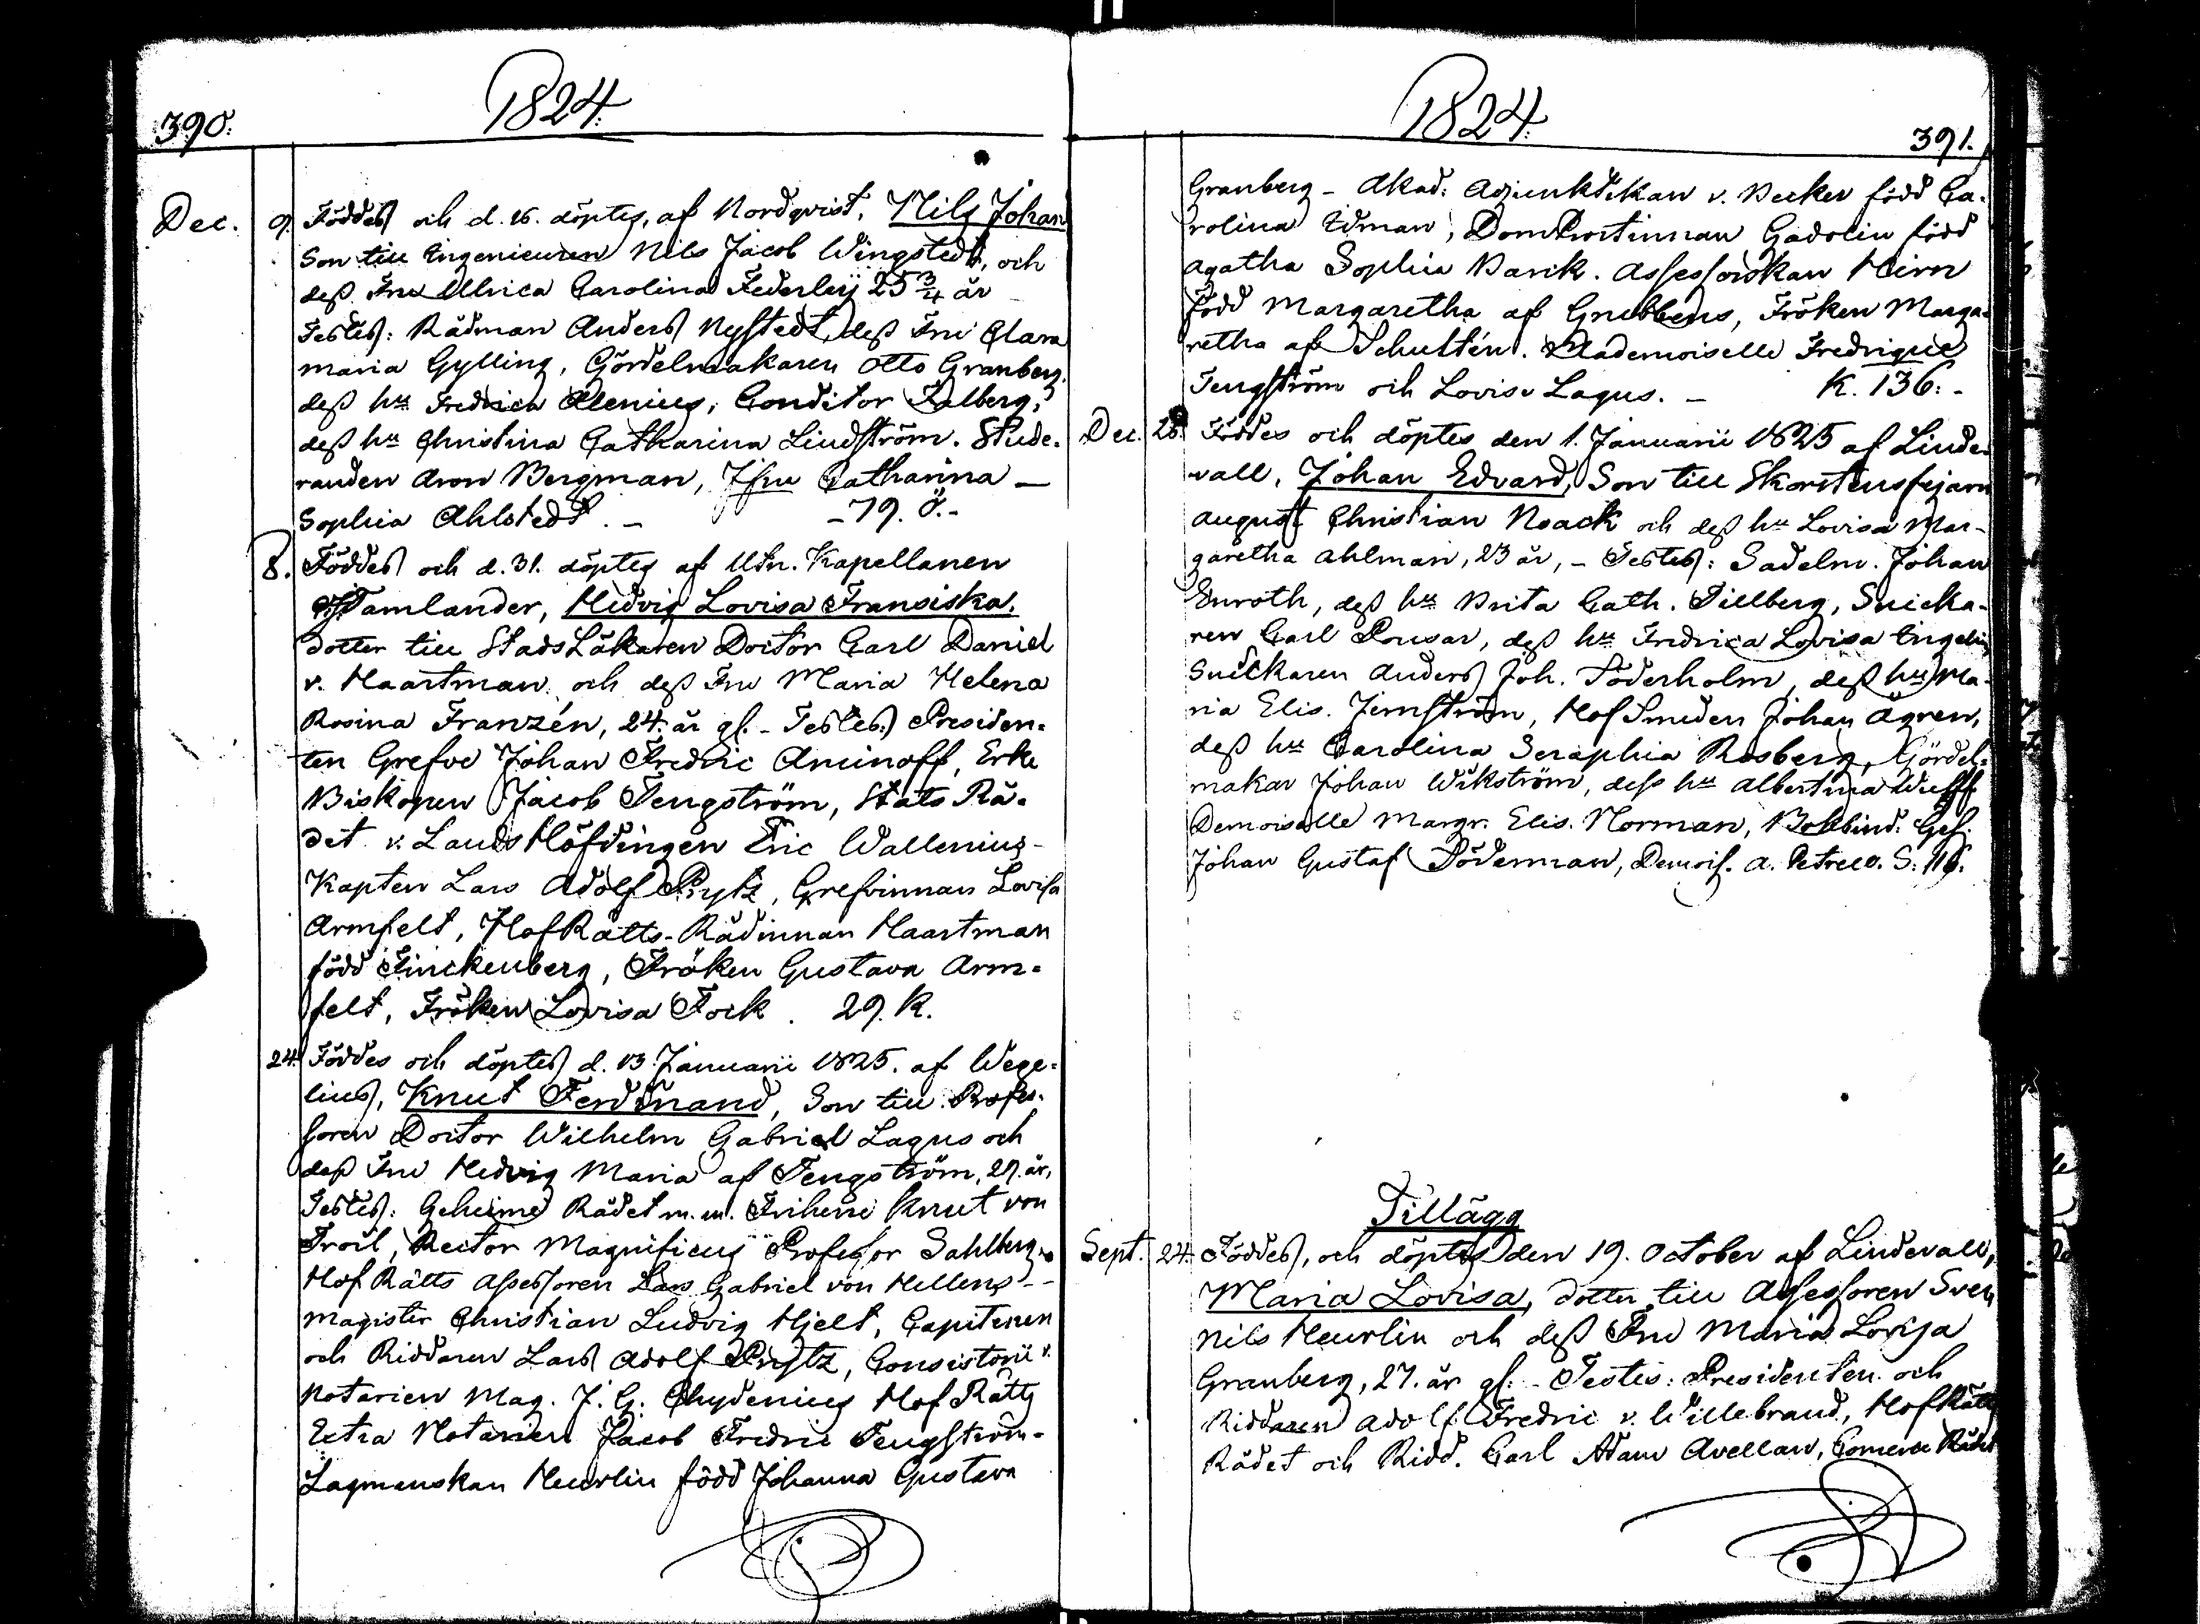 390.
1824.
Dec. 9. Föddes och d. 16. döptes, af Nordqvist, Nils Johan
Son till Ingenieuren Nils Jacob Wingstedt, och
deß Fru Ulrica Carolina Federley 25 3/4 år
Testes: Rådman Anders Nystedt, deß Fru Clara
Maria Gylling, Gördelmakaren Otto Granberg,
deß hu Fredrica Alenius, Conditor Falberg,
deß hu Christina Catharina Lindström. Stude-
randen Aron Bergman, Jfru Catharina –
Sophia Ahlstedt. – – 79. Ö. –
8. Föddes och d. 31. döptes af Utn. Kapellanen
Tamlander, Hedvig Lovisa Fransiska,
dotter till StadsLäkaren Doctor Carl Daniel
v. Haartman och deß Fru Maria Helena
Rosina Franzén, 24. år gl. – Testes: Presiden-
ten Grefve Johan Fredric Aminoff, Erke
Biskopen Jacob Tengström, Stats Rå-
det v. LandsHöfdingen Eric Wallenius –
Kapten Lars Adolf Prytz, Grefvinnan Lovisa
Armfelt, HofRätts-Rådinnan Haartman
född Finckenberg, Fröken Gustava Arm-
felt, Fröken Lovisa Fock. 29. K.
24. Föddes och döptes d. 13 Januarii 1825. af Wege-
lius, Knut Ferdinand, Son till Profes-
soren Doctor Wilhelm Gabriel Lagus och
deß Fru Hedvig Maria af Tengström, 29. år,
Testes: Geheime Rådet m. m. Friherre Knut von
Troil, Rector Magnificus Professor Sahlberg,
Hof Rätts Assessoren Lars Gabriel von Hellens –
Magister Christian Ludvig Hjelt, Capitenen
och Riddaren Lars Adolf Prytz, Consistorii v.
Notarien Mag. J. G. Chydenius Hof Rätts
Extra Notarien Jacob Fredric Tengström –
Lagmanskan Heurlin född Johanna Gustava
1824.
391.
Granberg – Akad: Adjunktskan v. Becker född Ca-
rolina Edman, DomProstinnan Gadolin född
Agatha Sophia Barck. Assessorskan Hirn
född Margaretha af Grubbens, Fröken Marga-
retha af Schultén. Mademoiselle Fredrique
Tengström och Lovise Lagus. – K. 136. –
Dec. 28. Föddes och döptes den 1. Januarii 1825 af Linde-
wall, Johan Edvard, Son till Skorstensfejarn
August Christian Noack och deß hu Lovisa Mar-
garetha Ahlman, 23 år, – Testes: Sadelm. Johan
Enroth, deß hu Brita Cath. Tillberg, Snicka-
ren Carl Pousar, deß hu Fredrica Lovisa Engelin,
Snickaren Anders Joh. Söderholm, deß hu Ma-
ria Elis. Jernström, HofSmeden Johan Ågren,
deß hu Carolina Seraphia Rosberg, Gördel-
makar Johan Wikström, dess hu Albertina Wulff
Demoiselle Margr. Elis. Norman, Bokbind. Ges.
Johan Gustaf Söderman, Demois. A. Petrell. S. 116.
Tillägg
Sept. 24. Föddes, och döptes den 19. October af Lindevall,
Maria Lovisa, dotter till Assessoren Sven
Nils Heurlin och deß Fru Maria Lovisa
Granberg, 27. år gl: – Testis: Presidenten och
Riddaren Adolf Fredric v. Willebrand, HofRätts
Rådet och Ridd. Carl Adam Avellan, Comerce Rådet